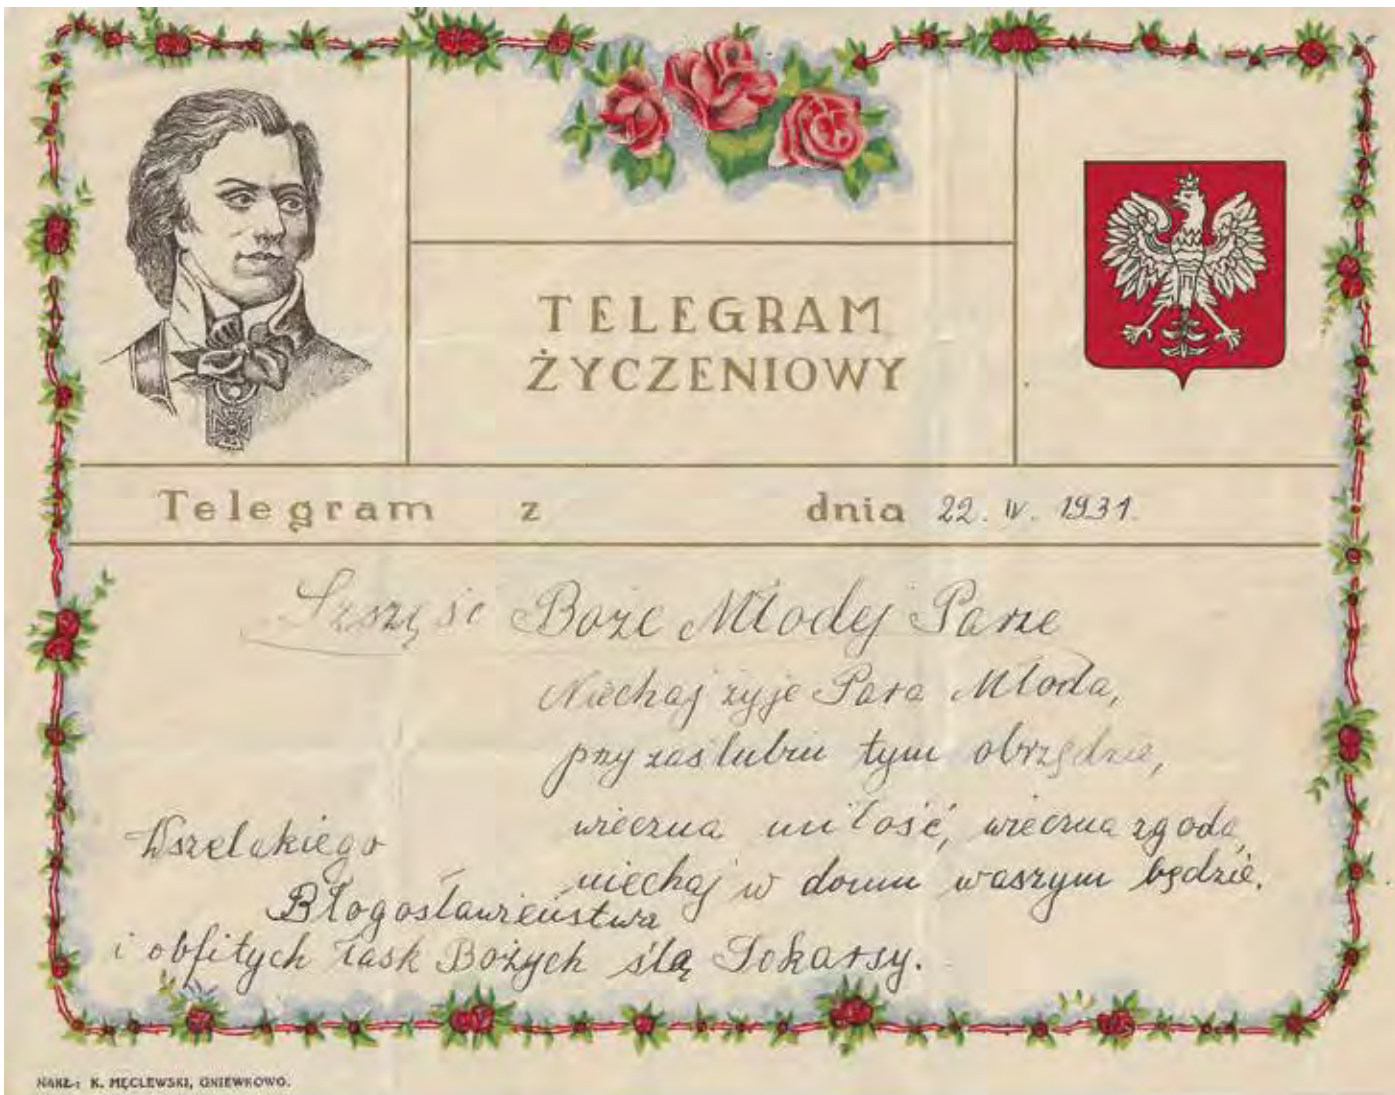 TELEGRAM
ŻYCZENIOWY
Telegram z dnia 22. IV. 1931.
Szszęść Boże Młodej Parze
Niechaj żyje Para Młoda,
przy zaślubin tym obrzędzie,
wieczna miłość, wieczna zgoda,
niechaj w domu waszym będzie.
Wszelakiego
Błogosławieństwa
i obfitych łask Bożych ślą Tokarsy.
NAKŁ.: K. MĘCLEWSKI, GNIEWKOWO.